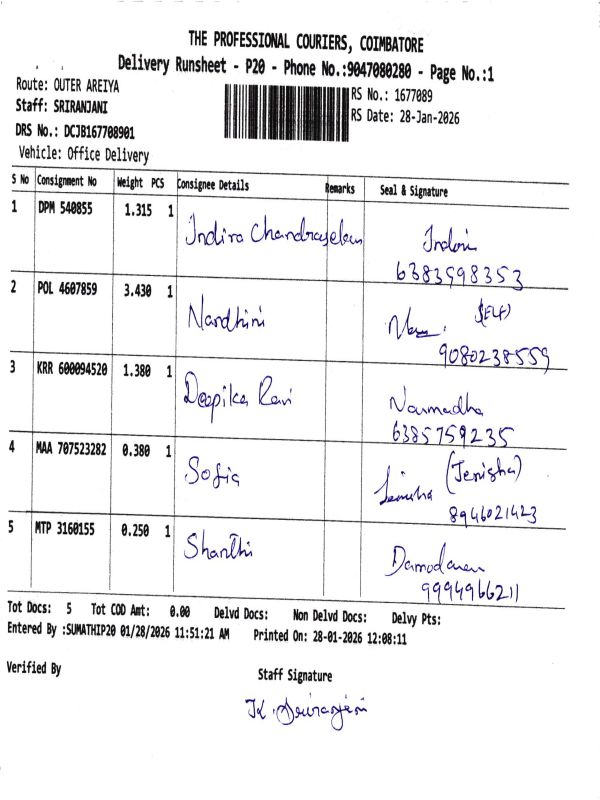 THE PROFESSIONAL COURIERS, COIMBATORE
Delivery Runsheet - P20 - Phone No.:9047080280 - Page No.:1
Route: OUTER AREIYA
RS No.: 1677089
Staff: SRIRANJANI
RS Date: 28-Jan-2026
DRS No.: DCJB167708901
Vehicle: Office Delivery
S No Consignment No Weight PCS Consignee Details Remarks Seal & Signature
1 DPM 540855 1.315 1 Indira Chandrasekean
6383598353
2 POL 4607859 3.430 1 Nandhini (SELF)
9080238559
3 KRR 600094520 1.380 1 Deepika Ravi Narmadha
6385759235
4 MAA 707523282 0.380 1 Sofia Jenisha (Jenisha)
8946021423
5 MTP 3160155 0.250 1 Shanthi Damodaran
9994966211
Tot Docs: 5 Tot COD Amt: 0.00 Delvd Docs: Non Delvd Docs: Delvy Pts:
Entered By :SUMATHIP20 01/28/2026 11:51:21 AM Printed On: 28-01-2026 12:08:11
Verified By Staff Signature
K. Sriranjani